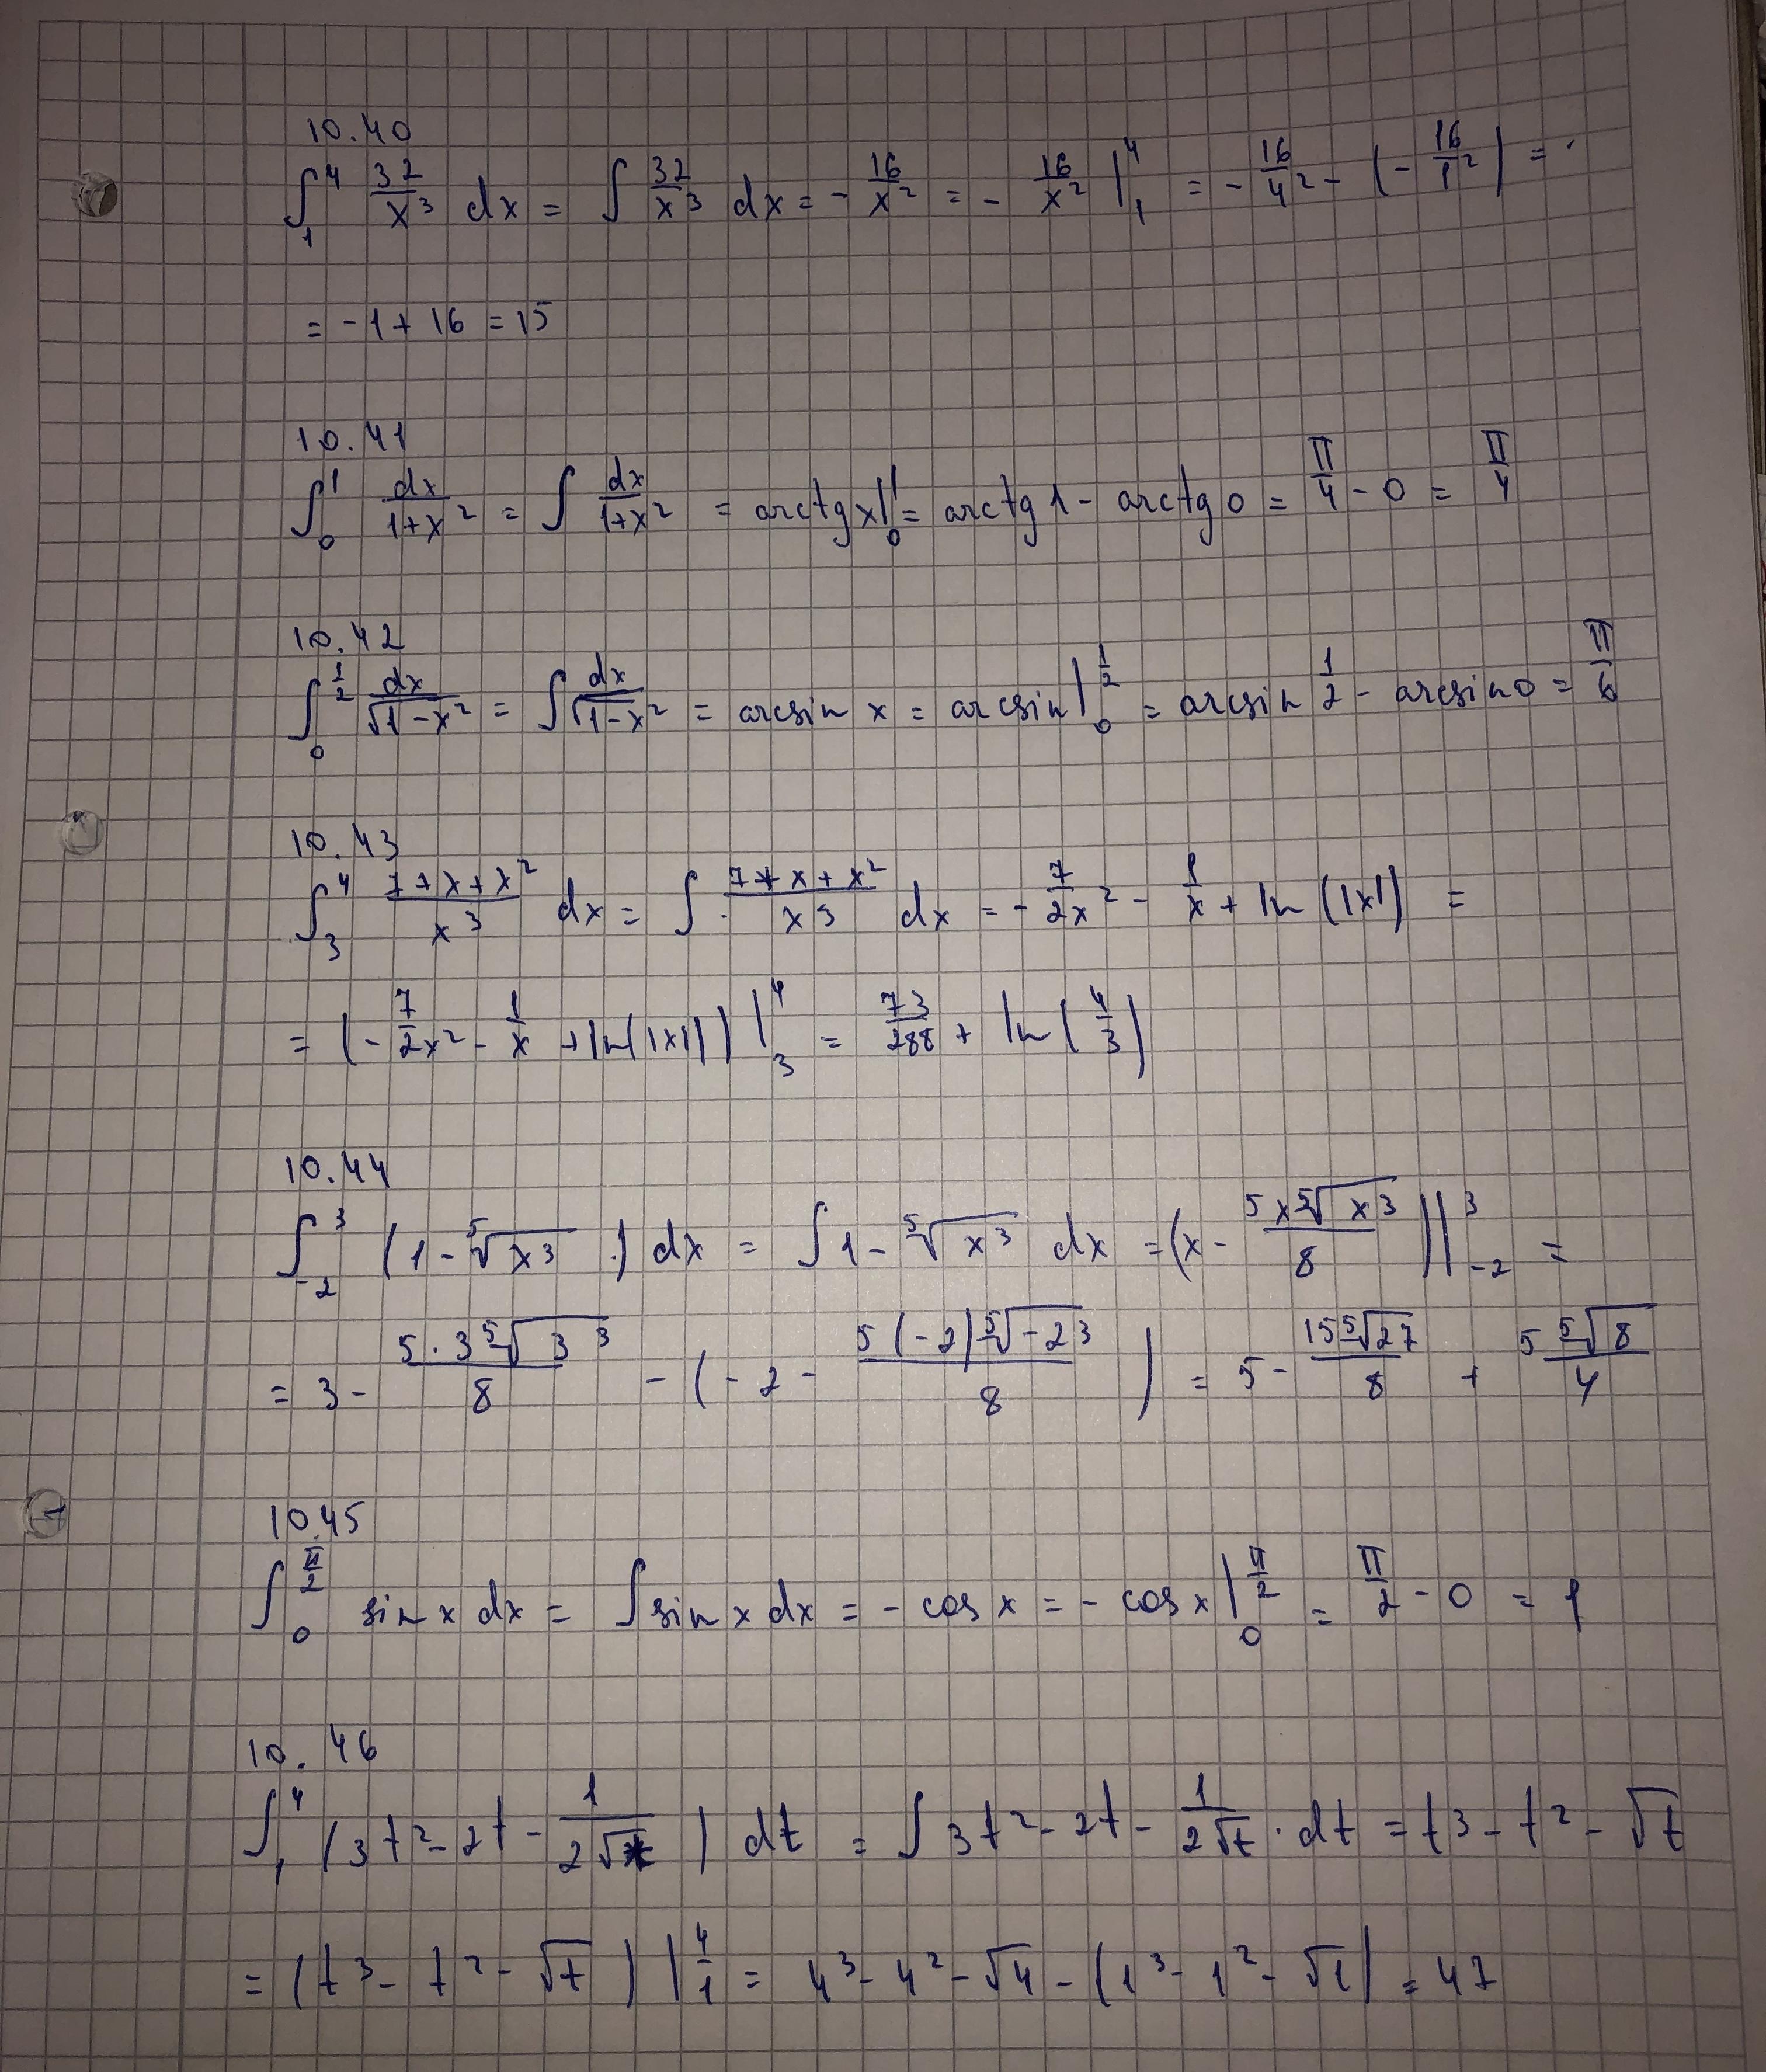 10.40
∫₁⁴ 32/x³ dx = ∫ 32/x³ dx = - 16/x² = - 16/x² |₁⁴ = - 16/4² - (- 16/1²) =
= -1 + 16 = 15
10.41
∫₀¹ dx/(1+x²) = ∫ dx/(1+x²) = arctg x|₀¹ = arctg 1 - arctg 0 = π/4 - 0 = π/4
10.42
∫₀^(1/2) dx/√(1-x²) = ∫ dx/√(1-x²) = arcsin x = arcsin |₀^(1/2) = arcsin 1/2 - arcsin 0 = π/6
10.43
∫₃⁴ (7+x+x²)/x³ dx = ∫ (7+x+x²)/x³ dx = - 7/2x² - 1/x + ln (|x|) =
= (- 7/2x² - 1/x + ln(|x|)) |₃⁴ = 73/288 + ln (4/3)
10.44
∫₋₂³ (1 - ⁵√x³) dx = ∫ 1 - ⁵√x³ dx = (x - 5x⁵√x³/8)||₋₂³ =
= 3 - 5·3⁵√3³/8 - (-2 - 5(-2)⁵√-2³/8) = 5 - 15⁵√27/8 + 5⁵√8/4
10.45
∫₀^(π/2) sin x dx = ∫ sin x dx = - cos x = - cos x |₀^(π/2) = π/2 - 0 = 1
10.46
∫₁⁴ (3t² - 2t - 1/2√t) dt = ∫ 3t² - 2t - 1/2√t · dt = t³ - t² - √t
= (t³ - t² - √t) |₁⁴ = 4³ - 4² - √4 - (1³ - 1² - √1) = 47